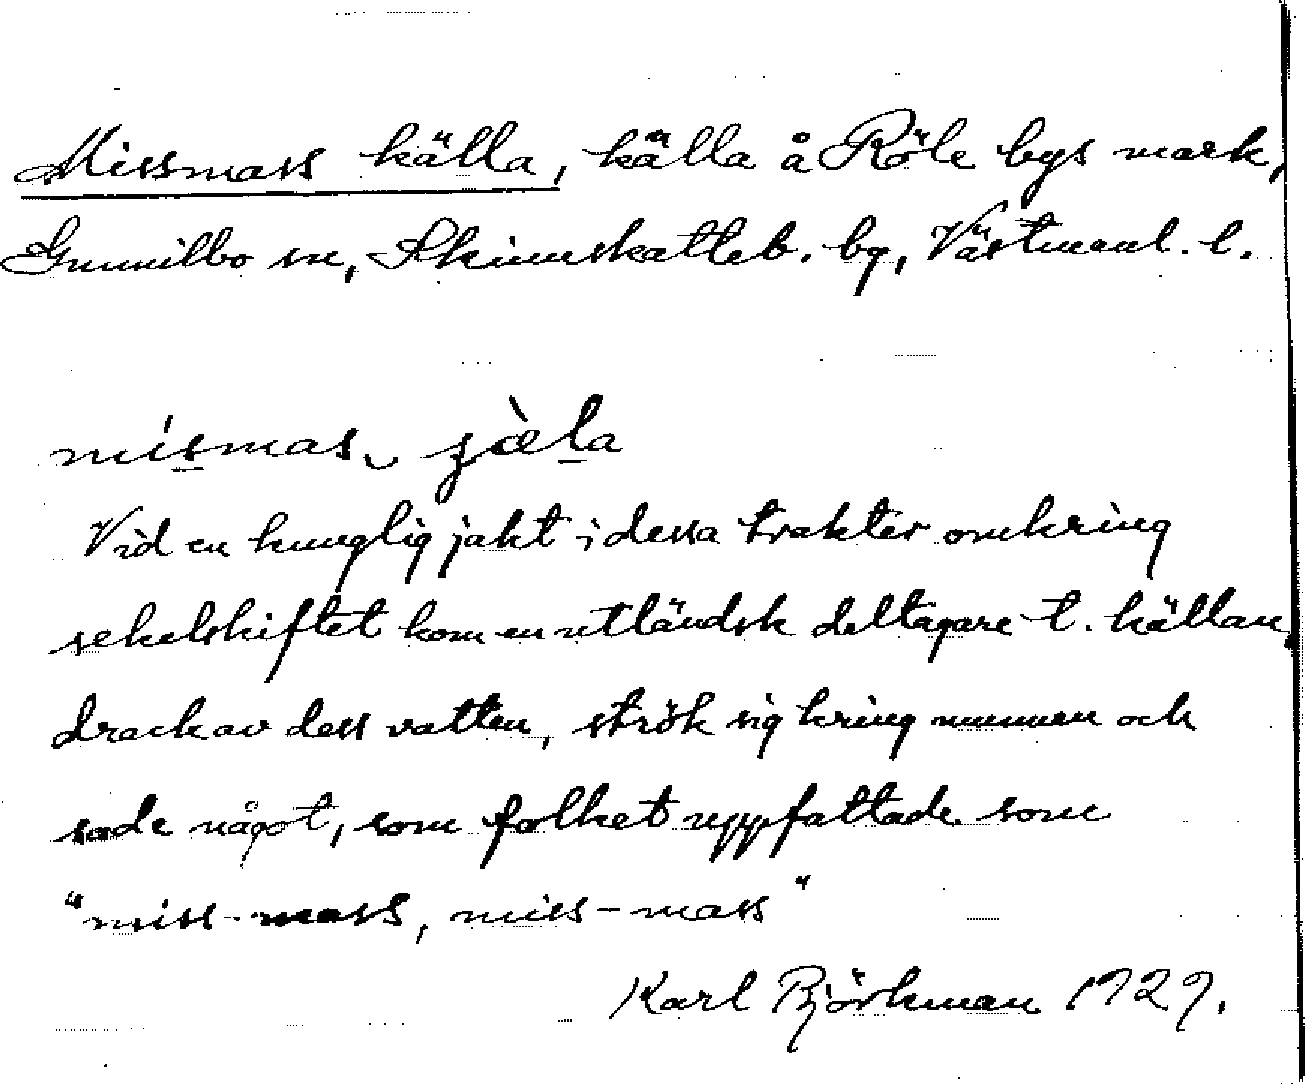 Missmass källa, källa å Röle bys mark,
Gunnilbo sn, Skinnskatteb. bg, Västmanl. l.
mísmas ̮ ɟæ̀la
Vid en kunglig jakt i dessa trakter omkring
sekelskiftet kom en utländsk deltagare t. källan,
drack av dess vatten, strök sig kring munnen och
sade något, som folket uppfattade som
"miss-mass, miss-mass"
Karl Björkman 1929.